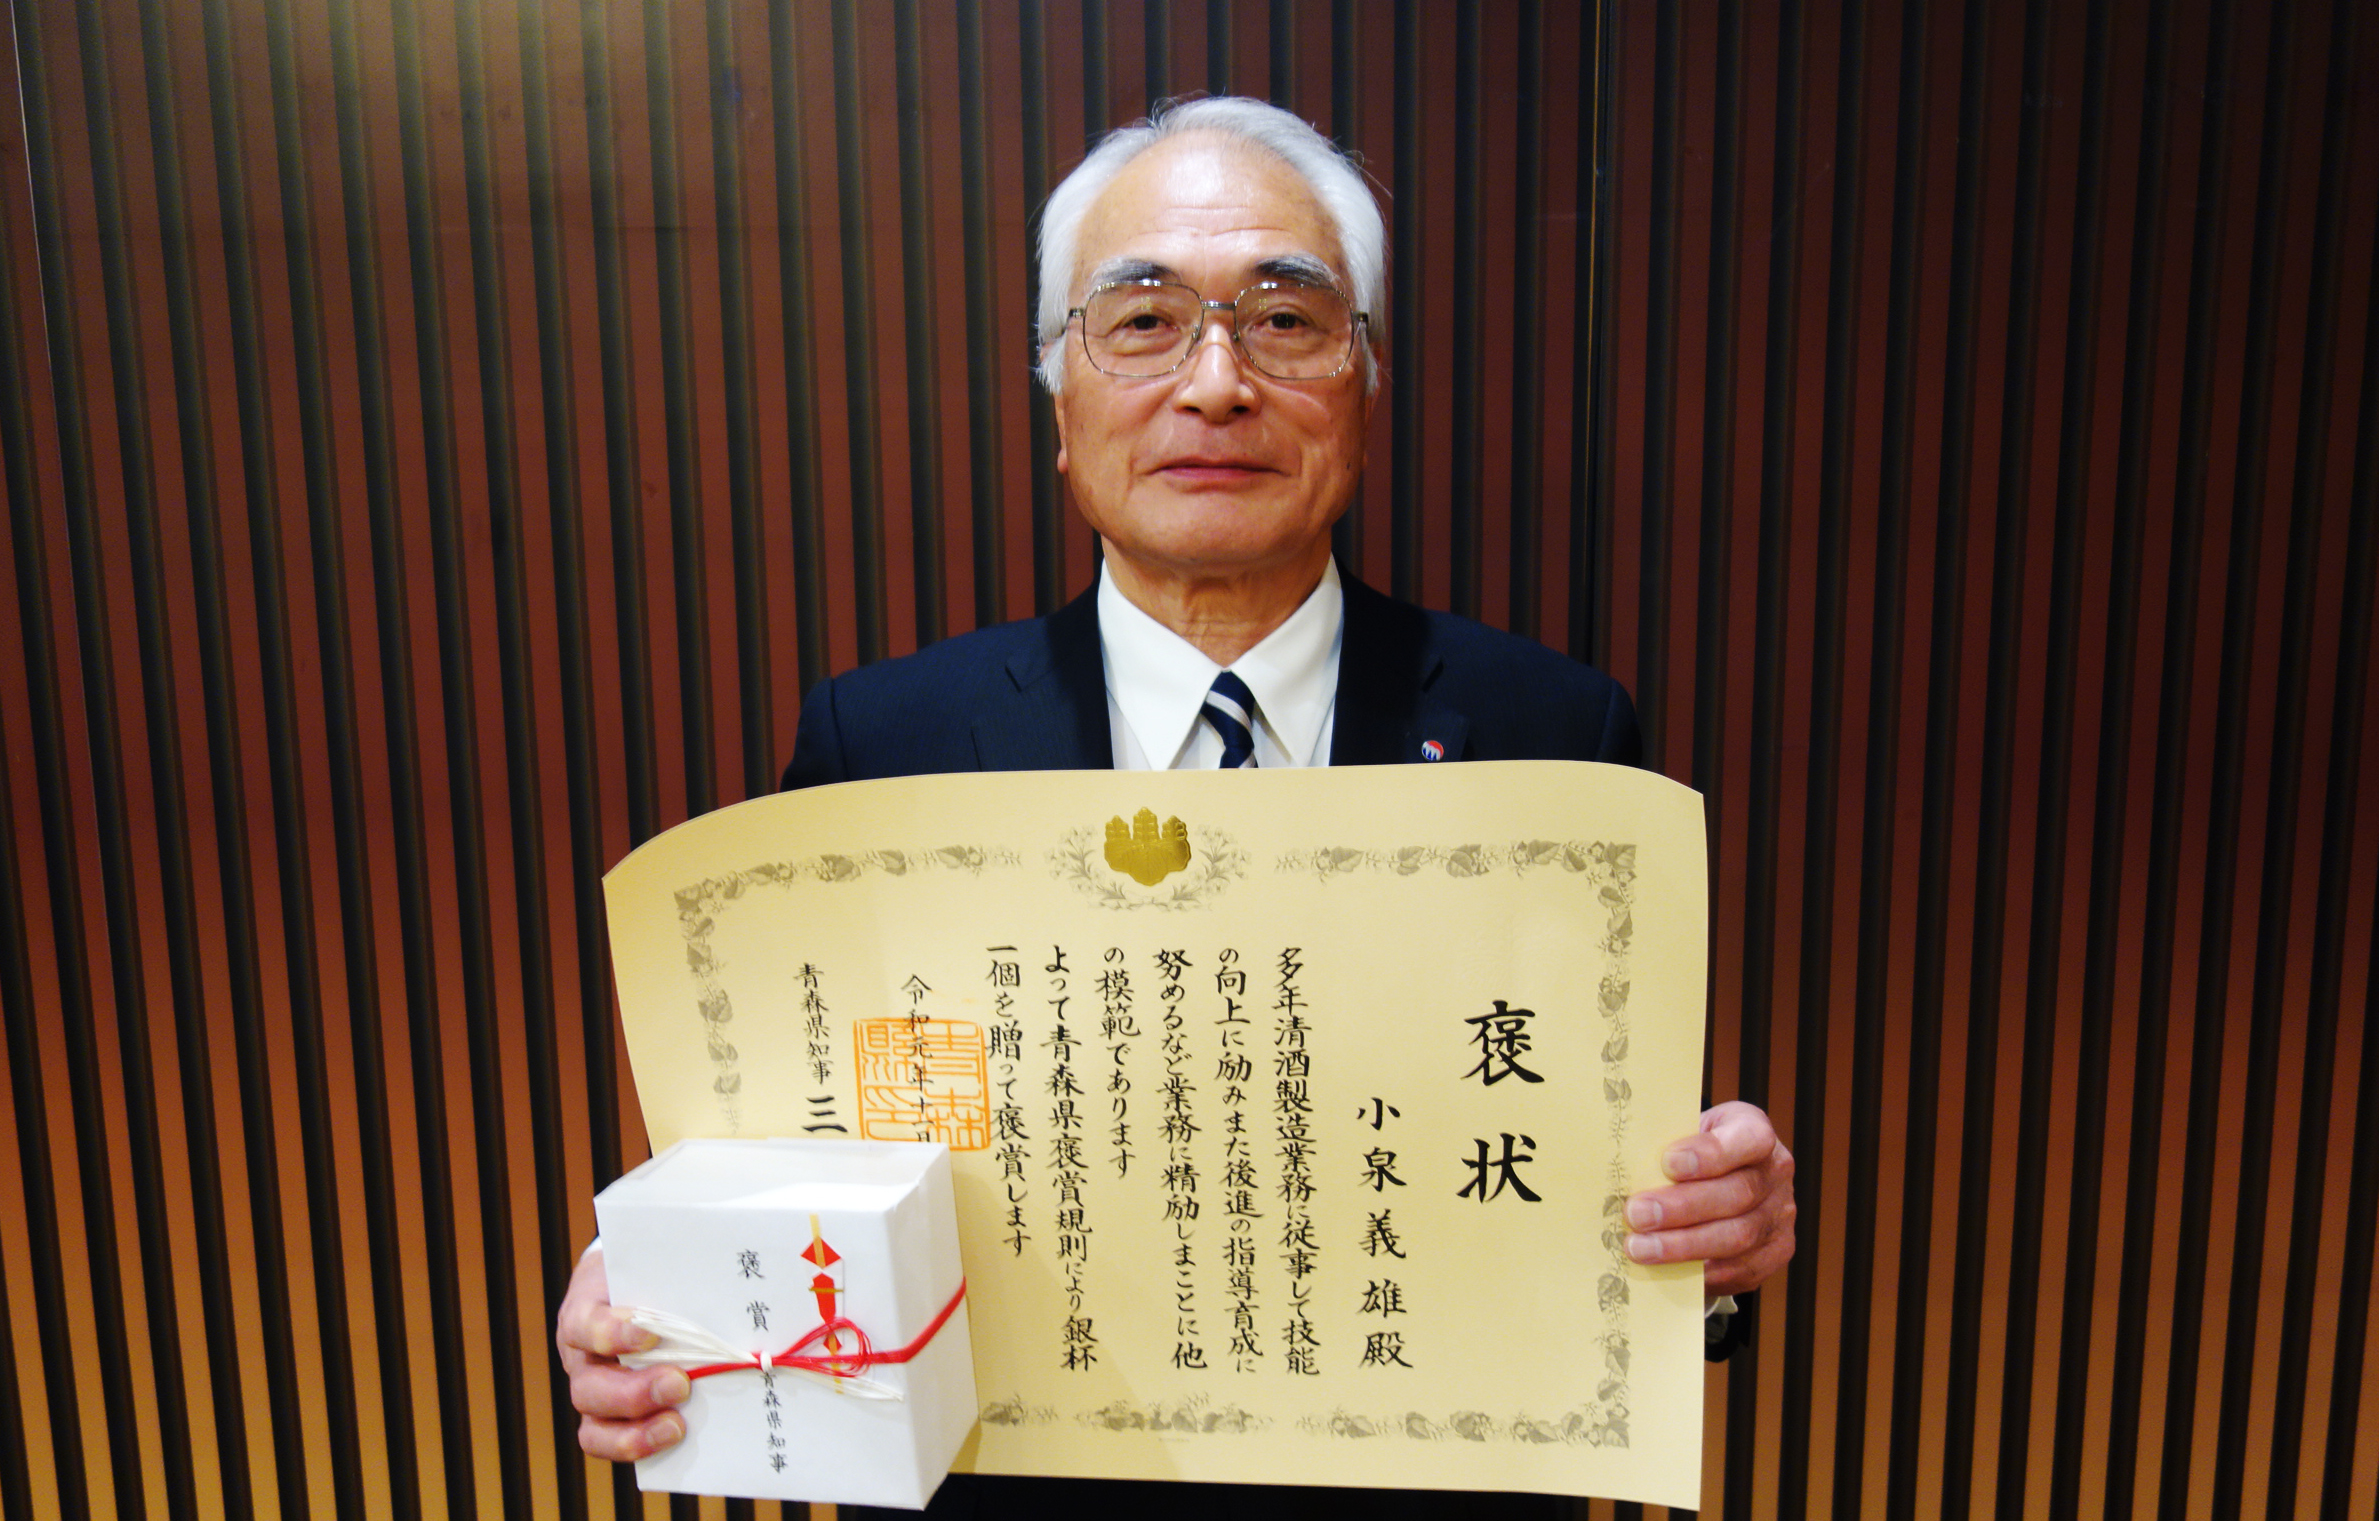 褒状
小泉義雄殿
多年清酒製造業務に従事して技能
の向上に励みまた後進の指導育成に
努めるなど業務に精励しまことに他
の模範であります
よって青森県褒賞規則により銀杯
一個を贈って褒賞します
令和元年十一月
青森県知事 三
青森縣印
褒賞
青森県知事